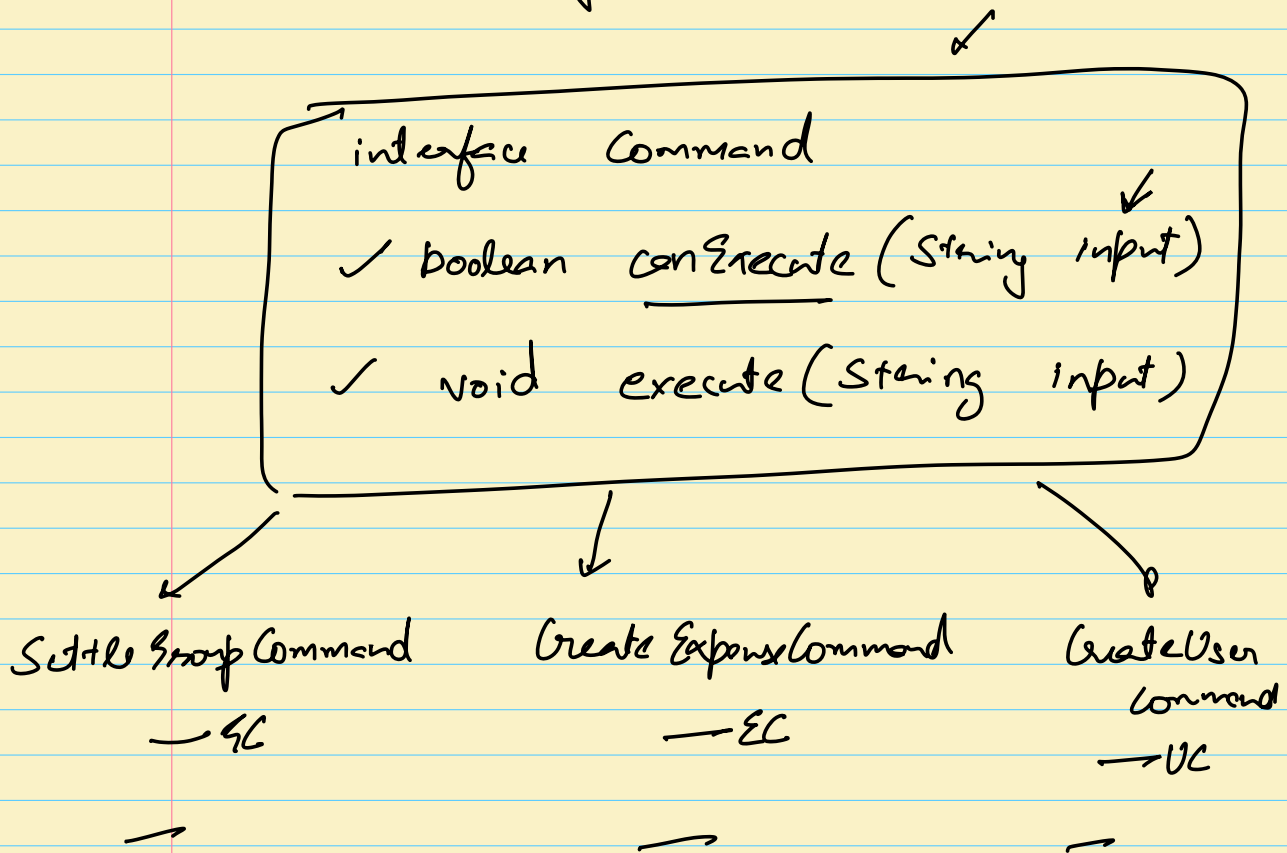 interface Command
✓ boolean canExecute (String input)
✓ void execute (String input)
SettleGroupCommand
CreateExpenseCommand
CreateUser
Command
— GC
— EC
— UC